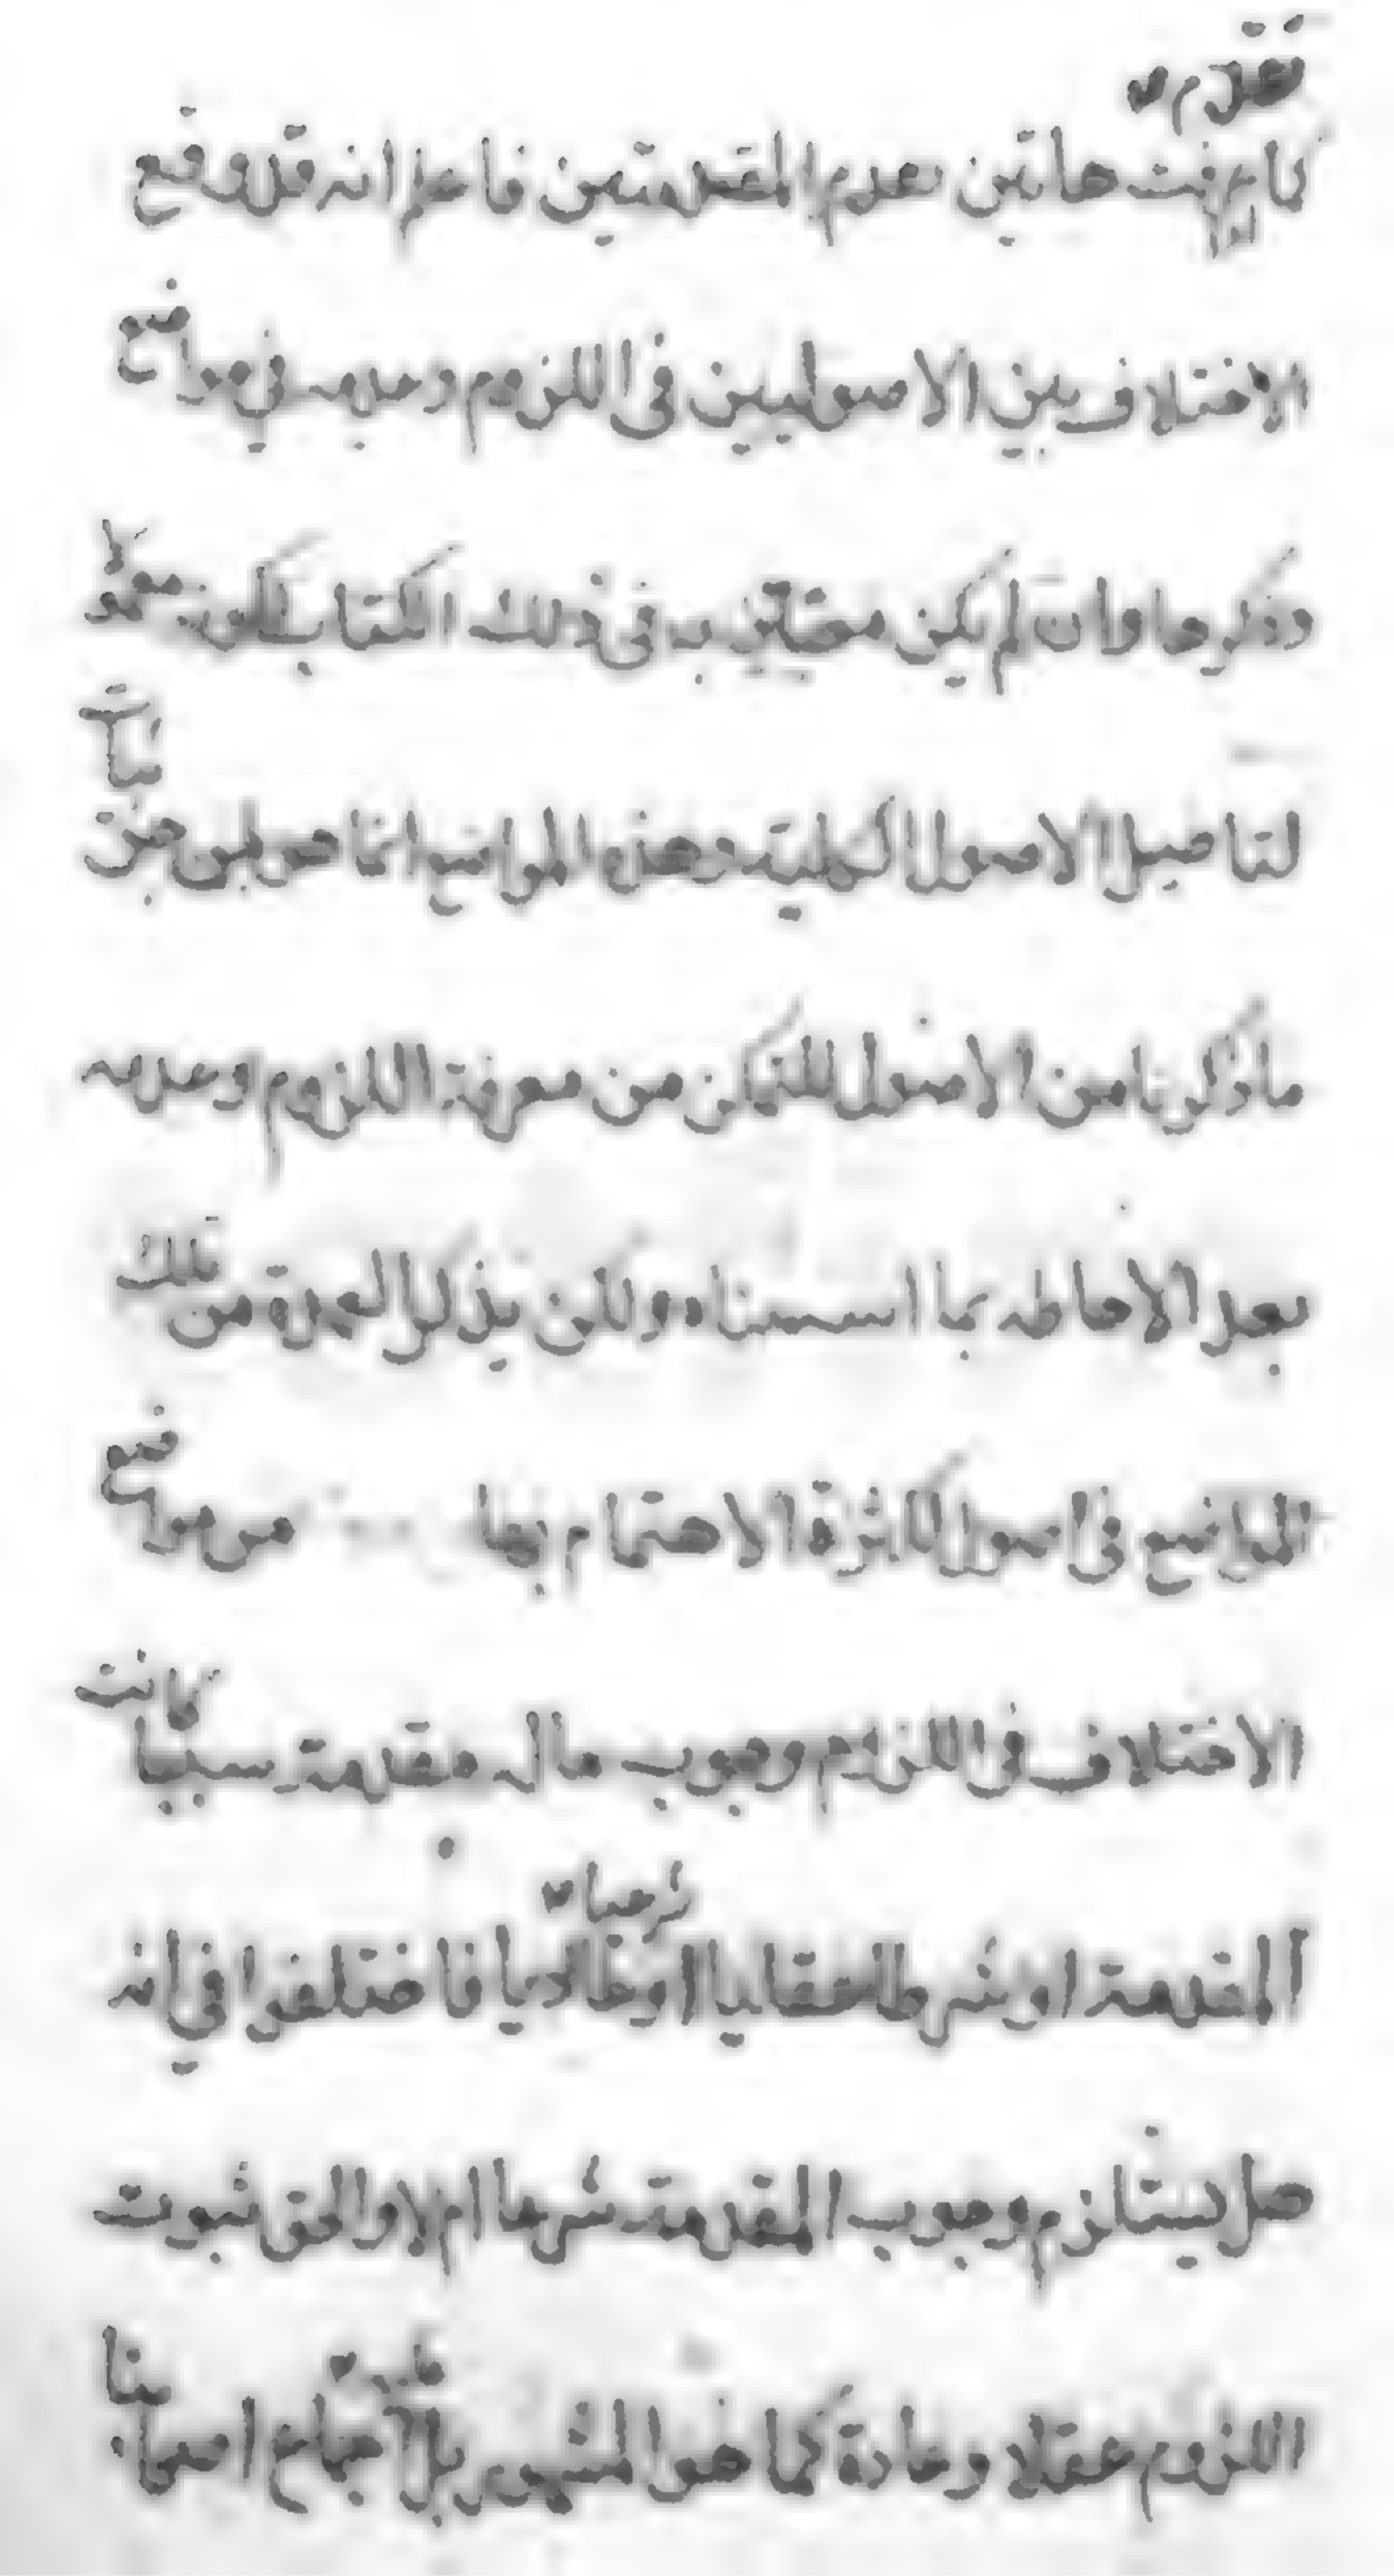 تقدم
عرفت هاتين المقدمتين فاعلم انه قد وقع
الاختلاف بين الاصوليين فى اللزوم وعدمه في مواضع
وذكرها وان لم يكن مما يليق به فى ذلك الكتاب لكن
لتاصيل الاصول الكلية وهذه المواضع انما هو لمن
ما ذكرنا من الاصول للتمكن من معرفة اللزوم وعدمه
بعد الاحاطه بما اسسناه ولكن نذكر العمدة من تلك
المواضع فى اصول لكثرة الاهتمام بها من مواضع
الاختلاف فى اللزوم وجوب ماله مقدمة سببا كانت
المقدمة او شرطا عقليا او عاديا فاختلفوا في انه
هل يستلزم وجوب المقدمة شرعا ام لا والحق ثبوت
اللزوم عقلا وعادة كما هو المشهور بل اجماع اصحابنا